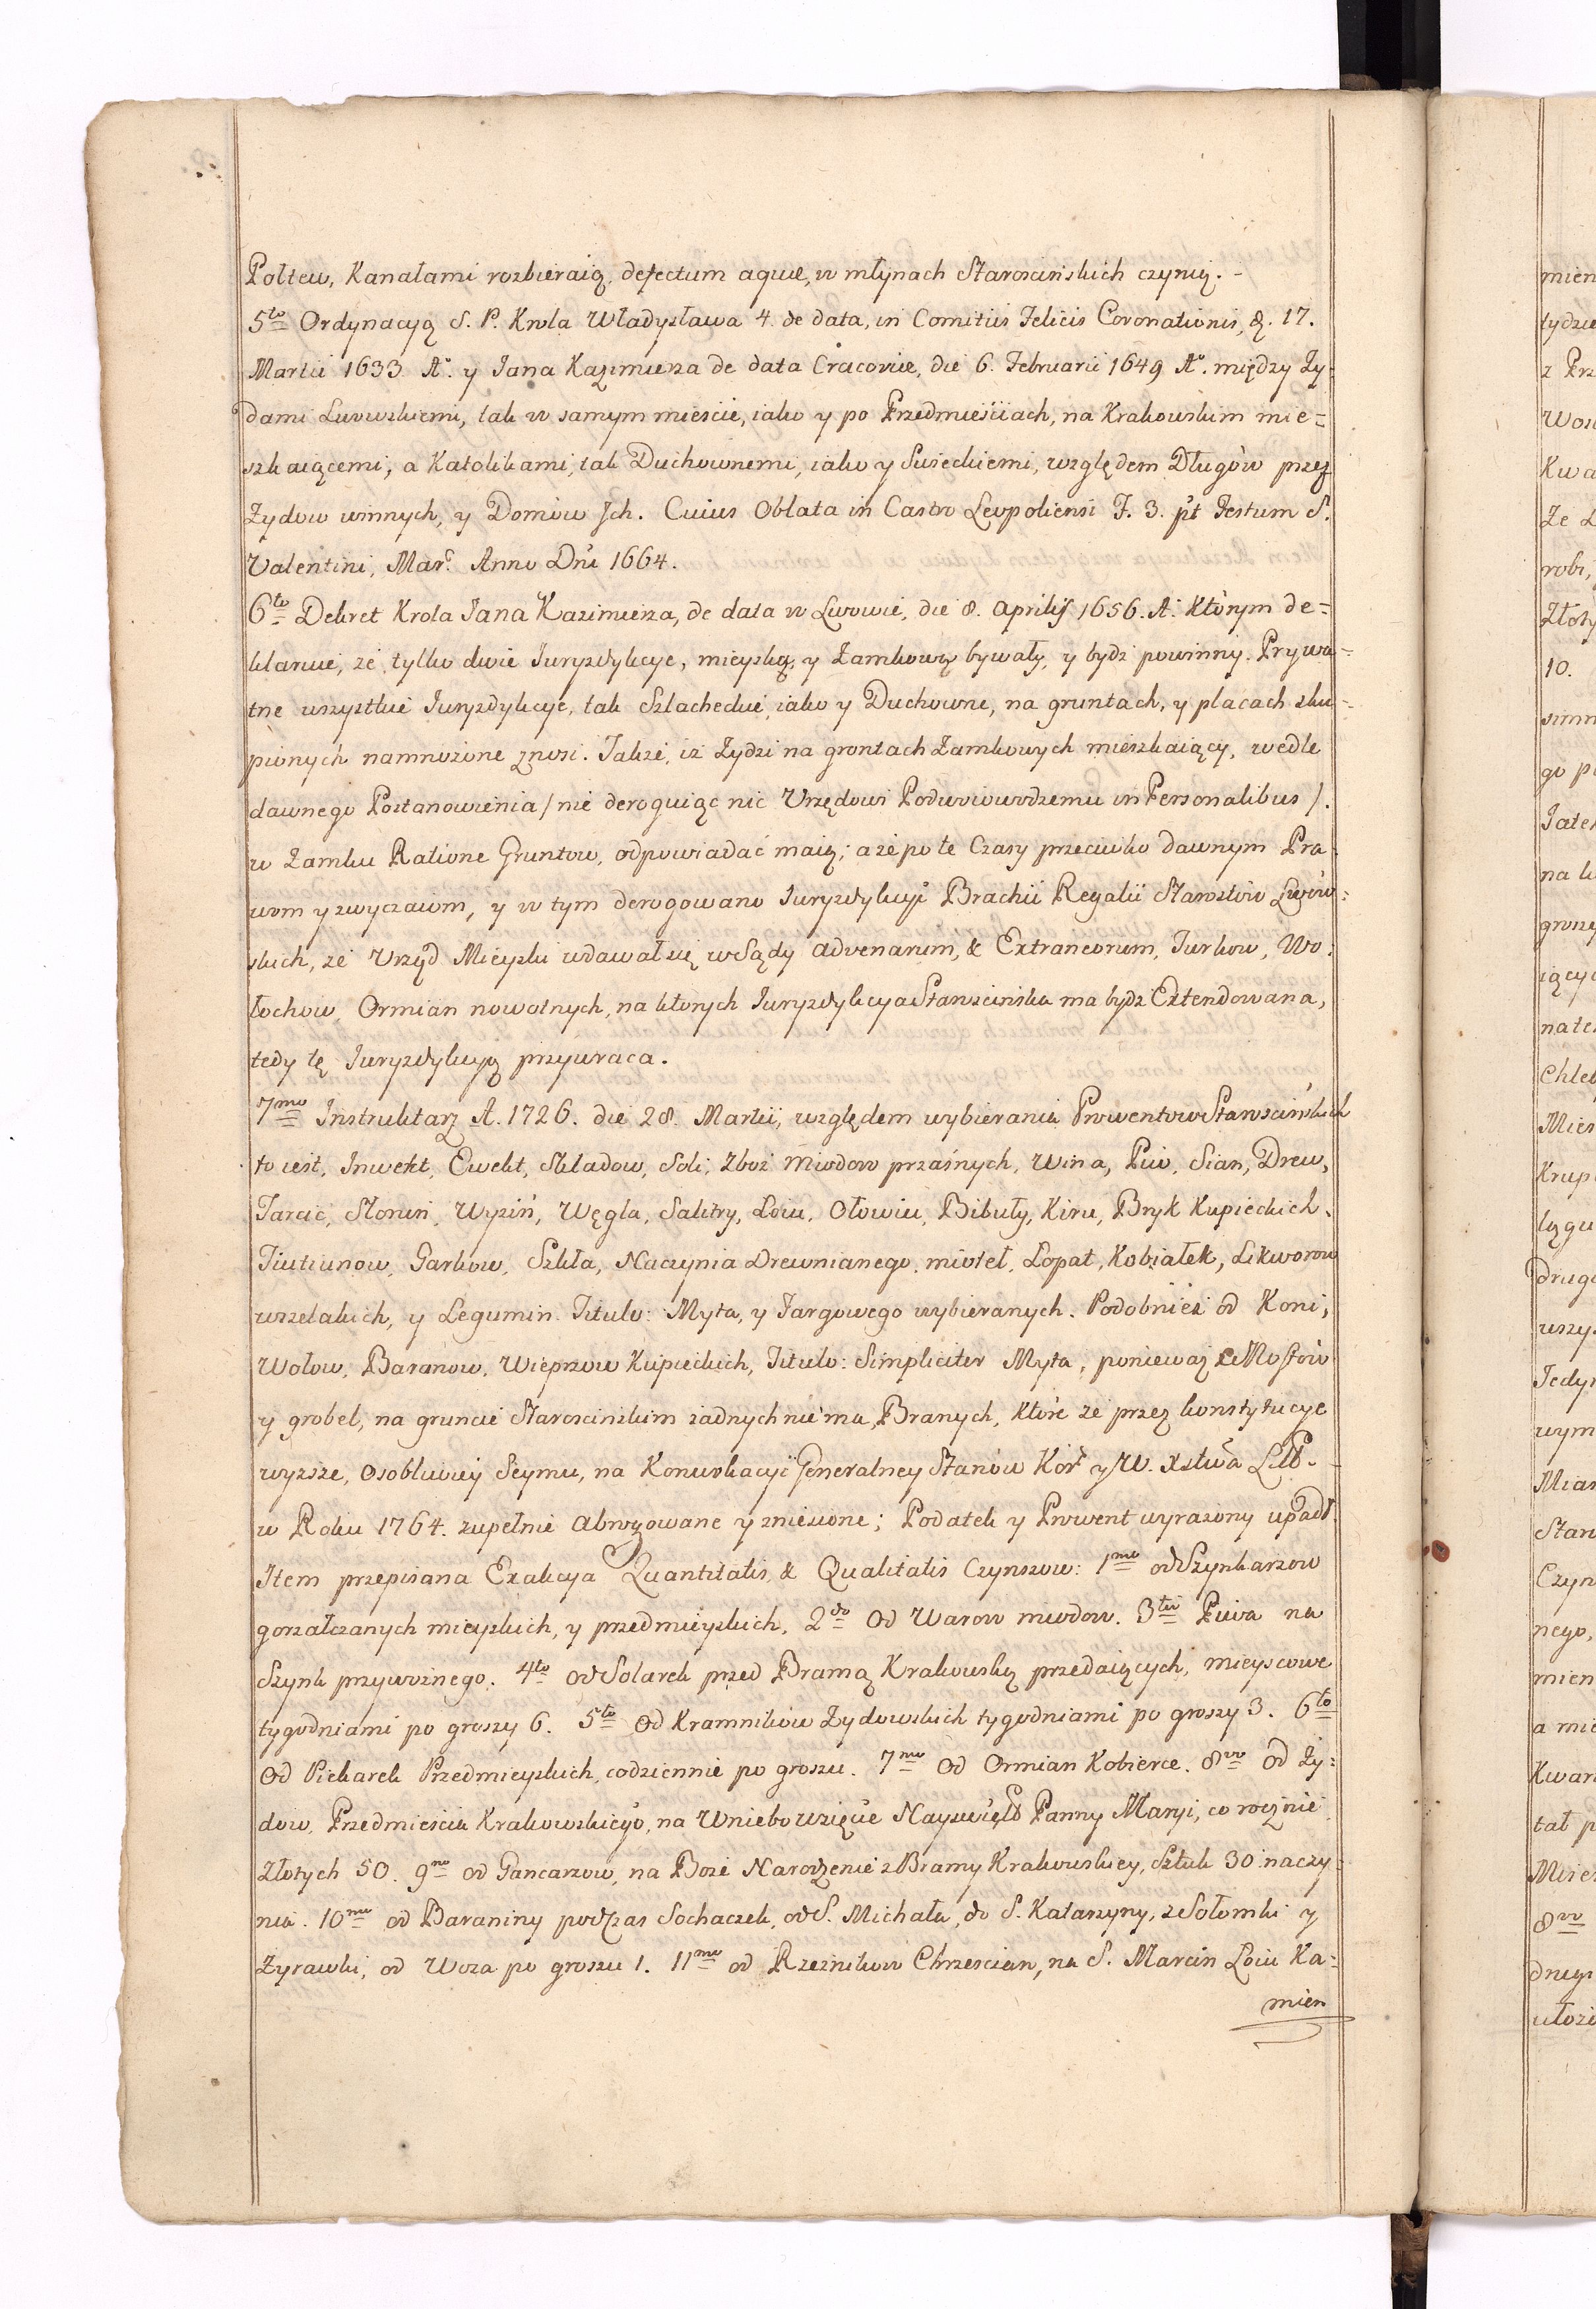 Połtew, Kanałami rozbieraią, defectum aquæ, w młynach Starościńskich czynią. -
5to Ordynacyą S. P. Krola Władysława 4. de data, in Comitiis Felicis Coronationis, d. 17.
Martii 1633 Ao. y Jana Kazimierza de data Cracoviæ, die 6. Februarii 1649 Ao. między Ży=
dami Lwowskiemi, tak w samym mieście, iako y po Przedmieściach, na Krakowskim mie=
szkaiącemi, a Katolikami, tak Duchownemi, iako y Swieckiemi, względem Długów przez
Żydow winnych, y Domów Jch. Cuius Oblata in Castro Leopoliensi F. 3. pt Festum S.
Valentini, Mar. Anno Dni 1664.
6to Dekret Krola Jana Kazimierza, de data w Lwowie, die 8. Aprilis 1656. A. którym de=
klaruie, że tylko dwie Juryzdykcye, mieyską, y Zamkową bywały, y bydź powinny. Prywa=
tne wszystkie Juryzdykcye, tak Szlacheckie, iako y Duchowne, na gruntach, y placach sku=
pionych namnożone znosi. Także, iż Żydzi na grontach Zamkowych mieszkaiący, wedle
dawnego Postanowienia / nie deroguiąc nic Urzędowi Podwoiewodzemu in Personalibus /.
w Zamku Ratione Gruntow, odpowiadać maią; a że po te Czasy przeciwko dawnym Pra=
wom y zwyczaiom, y w tym derogowano Juryzdykcyi Brachii Regalii Starostów Lwów=
skich, że Urząd Mieyski wdawał się w Sądy Advenarum, & Extraneorum, Turkow, Wo=
łochow, Ormian nowotnych, na których Juryzdykcya Starościńska ma bydź Extendowana,
tedy tę Juryzdykcyą przywraca.
7mo Instruktarz A. 1726. die 28. Martii, względem wybierania Prowentow Starościńskich
to iest, Inwekt, Ewekt, Składow, Soli, Zboż Miodow przaśnych, Wina, Piw, Sian, Drew,
Tarcic, Słonin, Wyzin, Węgla, Saletry, Łoiu, Ołowiu, Bibuły, Kiru, Bryk Kupieckich,
Tiutiunow, Garkow, Szkła, Naczynia Drewnianego, mioteł, Łopat, Kobiałek, Likworow
wszelakich, y Legumin. Titulo: Myta, y Targowego wybieranych. Podobnież od Koni,
Wołow, Baranow, Wieprzow Kupieckich, Titulo: Simpliciter Myta, ponieważ że Mostów
y grobel, na gruncie Starościnskim żadnych nie ma, Branych, które że przez konstytucye
wyższe, Osobliwiey Seymu, na Konwokacyi Generalney Stanów Kor. y W. Xstwa Litt.
w Roku 1764. zupełnie Abrogowane y zniesione; Podatek y Prowent wyrażony upadł.
Item przepisana Exakcya Quantitatis, & Qualitatis Czynszow: 1mo od Szynkarzow
gorzałczanych mieyskich, y przedmieyskich, 2do Od Warow miodow. 3tio Piwa na
Szynk przywoznego. 4to od Solarek przed Bramą Krakowską przedaiących, mieyscowe
tygodniami po groszy 6. 5to Od Kramnikow Żydowskich tygodniami po groszy 3. 6to
Od Piekarek Przedmieyskich, codziennie po groszu. 7mo Od Ormian Kobierce. 8vo Od Ży=
dow, Przedmieścia Krakowskiego, na Wniebowzięcie Nayświęt Panny Maryi, co rocznie
Złotych 50. 9no od Gancarzow, na Boże Narodzenie z Bramy Krakowskiey, Sztuk 30 naczy=
nia. 10mo od Baraniny podczas Sochaczek, od S. Michała, do S. Katarzyny, z Sołomki y
Żyrawki, od Woza po groszu 1. 11mo od Rzeznikow Chrzescian, na S. Marcin Łoiu Ka=
mien